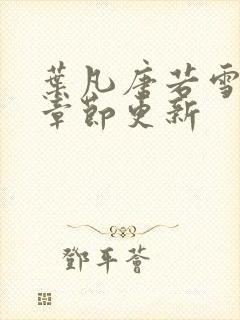 葉凡唐若雪
章節更新
鄧平薈